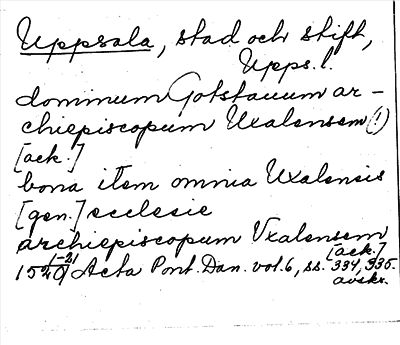 Uppsala, stad och stift,
Upps. l.
dominum Gotstauum ar-
chiepiscopum Uxalensem (!)
[ack.]
bona item omnia Uxalensis
[gen.] ecclesie
archiepiscopum Vxalensem
[ack.]
1520-21 Acta Pont. Dan. vol. 6, ss. 334, 335.
avskr.